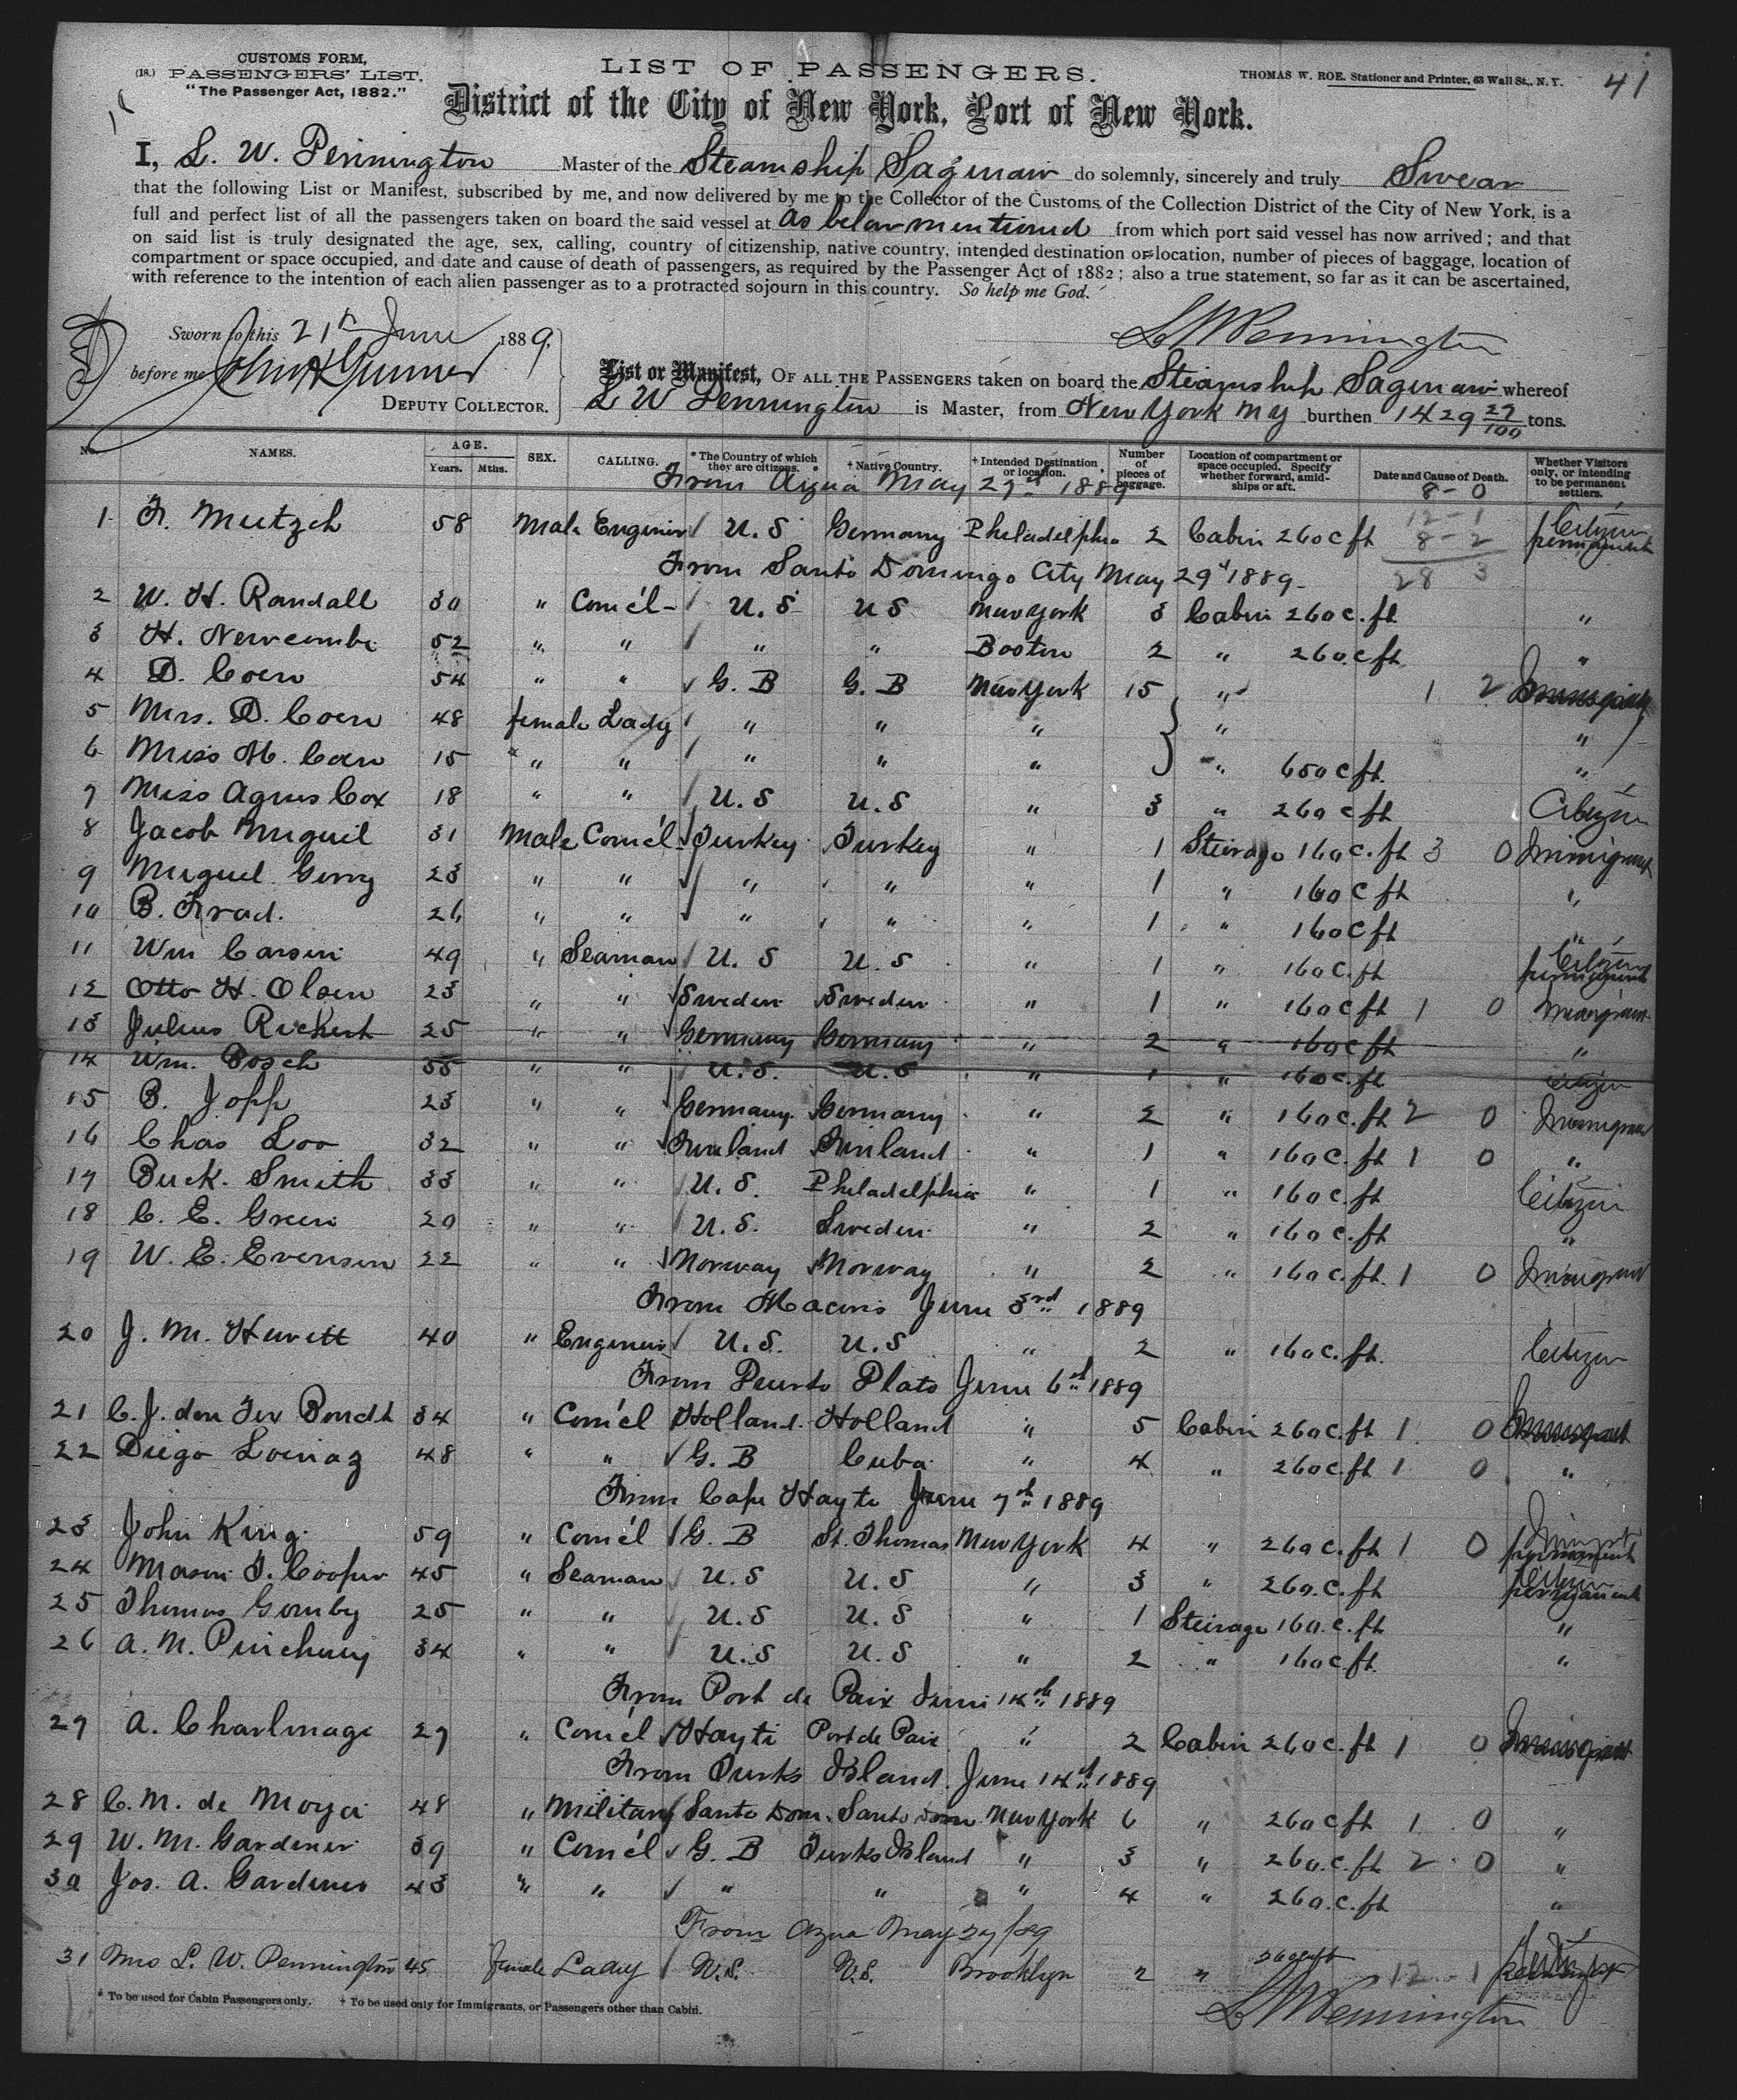 CUSTOMS FORM,
(18.) PASSENGERS' LIST.
"The Passenger Act, 1882."
LIST OF PASSENGERS.
THOMAS W. ROE. Stationer and Printer, 63 Wall St., N. Y.
41
District of the City of New York, Port of New York.
I, L. W. Pennington Master of the Steamship Saginaw do solemnly, sincerely and truly Swear
that the following List or Manifest, subscribed by me, and now delivered by me to the Collector of the Customs of the Collection District of the City of New York, is a
full and perfect list of all the passengers taken on board the said vessel at As below mentioned from which port said vessel has now arrived; and that
on said list is truly designated the age, sex, calling, country of citizenship, native country, intended destination or location, number of pieces of baggage, location of
compartment or space occupied, and date and cause of death of passengers, as required by the Passenger Act of 1882; also a true statement, so far as it can be ascertained,
with reference to the intention of each alien passenger as to a protracted sojourn in this country. So help me God.
L W Pennington
Sworn to this 21st June 1889,
before me
DEPUTY COLLECTOR.
List or Manifest, OF ALL THE PASSENGERS taken on board the Steamship Saginaw whereof
L W Pennington is Master, from New York NY burthen 1429 27/100 tons.
No. NAMES. AGE. Years. Mths. SEX. CALLING. * The Country of which they are citizens. † Native Country. † Intended Destination or location. Number of pieces of baggage. Location of compartment or space occupied. Specify whether forward, amidships or aft. Date and Cause of Death. Whether Visitors only, or intending to be permanent settlers.
From Azua May 27th 1889
8-0
12-1
8-2
28 3
1 F. Mutzch 58 Male Enginer U.S Germany Philadelphia 2 Cabin 260 c ft Citizen permanent
From Santo Domingo City May 29th 1889
2 W. H. Randall 30 " Com'el U.S US New York 3 Cabin 260 c. ft "
3 H. Newcombe 52 " " " " Boston 2 " 260 c ft "
4 D. Coen 54 " " G. B G. B New York 15 " 1 2 Immigrant
5 Mrs. D. Coen 48 female Lady " " " " "
6 Miss M. Coen 15 " " " " " " 650 c ft. "
7 Miss Agnes Cox 18 " " U.S U.S " 3 " 260 c ft Citizen
8 Jacob Miguil 31 Male Com'el Turkey Turkey " 1 Steirage 160 c. ft 3 0 Immigrant
9 Miguel Gerry 23 " " " " " 1 " 160 c ft "
10 B. Frad. 26 " " " " " 1 " 160 c ft "
11 Wm Carsin 49 " Seaman U. S U. S " 1 " 160 c. ft Citizen permanent
12 Otto H. Olsen 23 " " Sweden Sweden " 1 " 160 c ft 1 0 Immigrant
13 Julius Richert 25 " " Germany Germany " 2 " 160 c ft "
14 Wm. Bosch 35 " " U.S. U.S " 1 " 160 c. ft Citizen
15 B. Jopp 23 " " Germany Germany " 2 " 160 c. ft 2 0 Immigrant
16 Chas Loo 32 " " Finland Finland " 1 " 160 c. ft 1 0 "
17 Buck. Smith 33 " " U.S. Philadelphia " 1 " 160 c. ft Citizen
18 C. E. Green 20 " " U.S. Sweden " 2 " 160 c. ft "
19 W. E. Evensen 22 " " Norway Norway " 2 " 160 c. ft. 1 0 Immigrant
From Macoris June 3rd 1889
20 J. M. Hewett 40 " Enginer U.S. U.S " 2 " 160 c. ft. Citizen
From Puerto Plata June 6th 1889
21 C. J. den Tex Bondt 34 " Com'el Holland Holland " 5 Cabin 260 c. ft 1 0 Immigrant
22 Diego Loinaz 48 " " G. B Cuba " 4 " 260 c. ft 1 0 "
From Cape Hayte June 7th 1889
23 John King 59 " Com'el G. B St. Thomas New York 4 " 260 c. ft 1 0 Immigrant permanent
24 Mason T. Cooper 45 " Seaman U.S U.S " 3 " 260. c. ft Citizen permanent
25 Thomas Gomby 25 " " U.S U.S " 1 Steirage 160. c. ft "
26 A. M. 34 " " U.S U.S " 2 " 160 c. ft. "
From Port de Paix June 14th 1889
27 A. Charlmage 27 " Com'el Hayti Port de Paix " 2 Cabin 260 c. ft 1 0 Immigrant
From Turks Island. June 14th 1889
28 C. M. de Moya 48 " Military Santo Dom. Santo Dom New York 6 " 260 c ft 1 0 "
29 W. M. Gardiner 39 " Com'el G. B Turks Island " 3 " 260. c. ft 2 0 "
30 Jos. A. Gardiner 43 " " " " " 4 " 260. c. ft "
From Azua May 27/89
31 Mrs L. W. Pennington 45 female Lady U.S. U.S. Brooklyn 2 " 260 c ft 12 - 1
L W Pennington
* To be used for Cabin Passengers only. † To be used only for Immigrants, or Passengers other than Cabin.